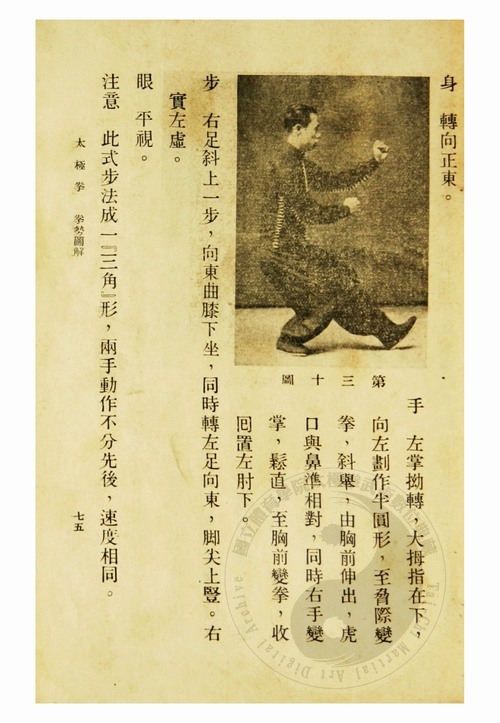 身　轉向正東。
第三十圖
手　左掌拗轉，大拇指在下，
向左劃作半圓形，至脅際變
拳，斜舉，由胸前伸出，虎
口與鼻準相對，同時右手變
掌，鬆直，至胸前變拳，收
囘置左肘下。
步　右足斜上一步，向東曲膝下坐，同時轉左足向東，脚尖上豎。右
實左虛。
眼　平視。
注意　此式步法成一『三角』形，兩手動作不分先後，速度相同。
太極拳　拳勢圖解
七五
Tai Chi Martial Art Digital Archive